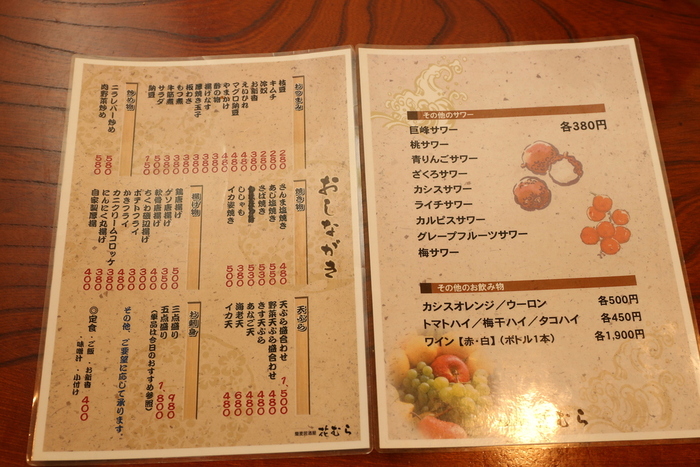 おしながき
おつまみ
枝豆 280
キムチ 280
冷奴 280
お新香 380
えいひれ 480
マグロ納豆 480
やまかけ 480
酢の物 380
揚げなす 380
厚焼き玉子 380
板わさ 380
もつ煮 380
牛筋煮
サラダ
納豆 150
炒め物
ニラレバー炒め 580
肉野菜炒め 580
焼き物
さんま塩焼き 480
あじ塩焼き 550
さば焼き 500
ししゃも 380
イカ姿焼き 530
揚げ物
鶏唐揚げ 500
ゲソ唐揚げ 350
軟骨唐揚げ 380
ちくわ磯辺揚げ 380
ポテトフライ 380
かきフライ
カニクリームコロッケ
にんにく丸揚げ 380
自家製厚揚 400
天ぷら
天ぷら盛合わせ 1,500
野菜天ぷら盛合わせ 480
きす天ぷら 480
あなご天 480
海老天 680
イカ天 480
お刺身
三点盛り 980
五点盛り 1,800
(単品は今日のおすすめ参照)
その他、ご要望に応じて承ります。
◎定食 400
・ご飯 ・お新香
・味噌汁 ・小付け
花むら
その他のサワー
巨峰サワー 各380円
桃サワー
青りんごサワー
ざくろサワー
カシスサワー
ライチサワー
カルピスサワー
グレープフルーツサワー
梅サワー
その他のお飲み物
カシスオレンジ／ウーロン 各500円
トマトハイ／梅干ハイ／タコハイ 各450円
ワイン【赤・白】(ボトル1本) 各1,900円
むら